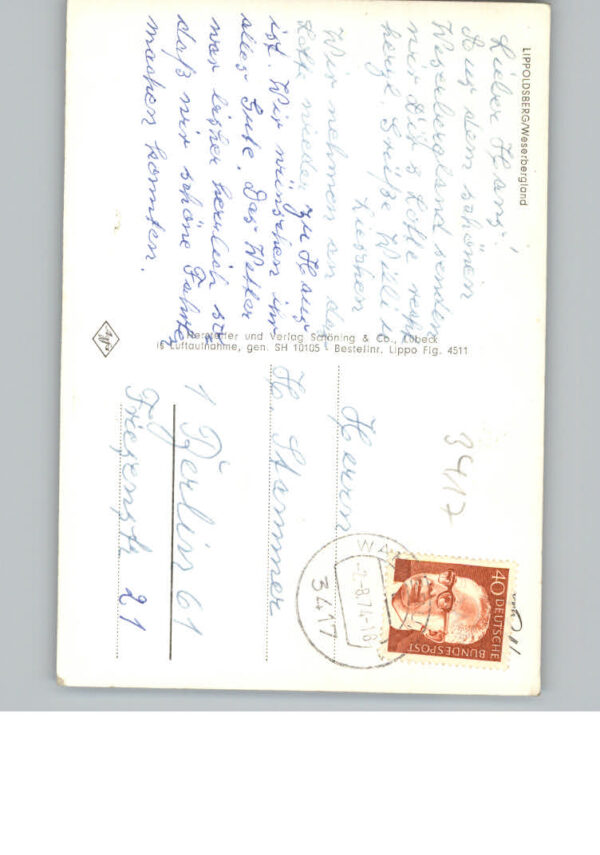 LIPPOLDSBERG/Weserbergland
Lieber Hans!
Aus dem schönen
Weserbergland senden
wir Dir u. Lotte recht
herzl. Grüße Willi u.
Lieschen
Wir nehmen an daß
Lotte wieder zu Haus
ist. Wir wünschen ihr
alles Gute. Das Wetter
war bisher herrlich so
daß wir schöne Fahrten
machen konnten.
Hersteller und Verlag Schöning & Co., Lübeck
Luftaufnahme, gen. SH 10105 - Bestellnr. Lippo Fig. 4511
3417
40 DEUTSCHE
BUNDESPOST
WA
-2.-8.74-18
3417
Herrn
H. Stammer
1 Berlin 61
Friesenstr. 21